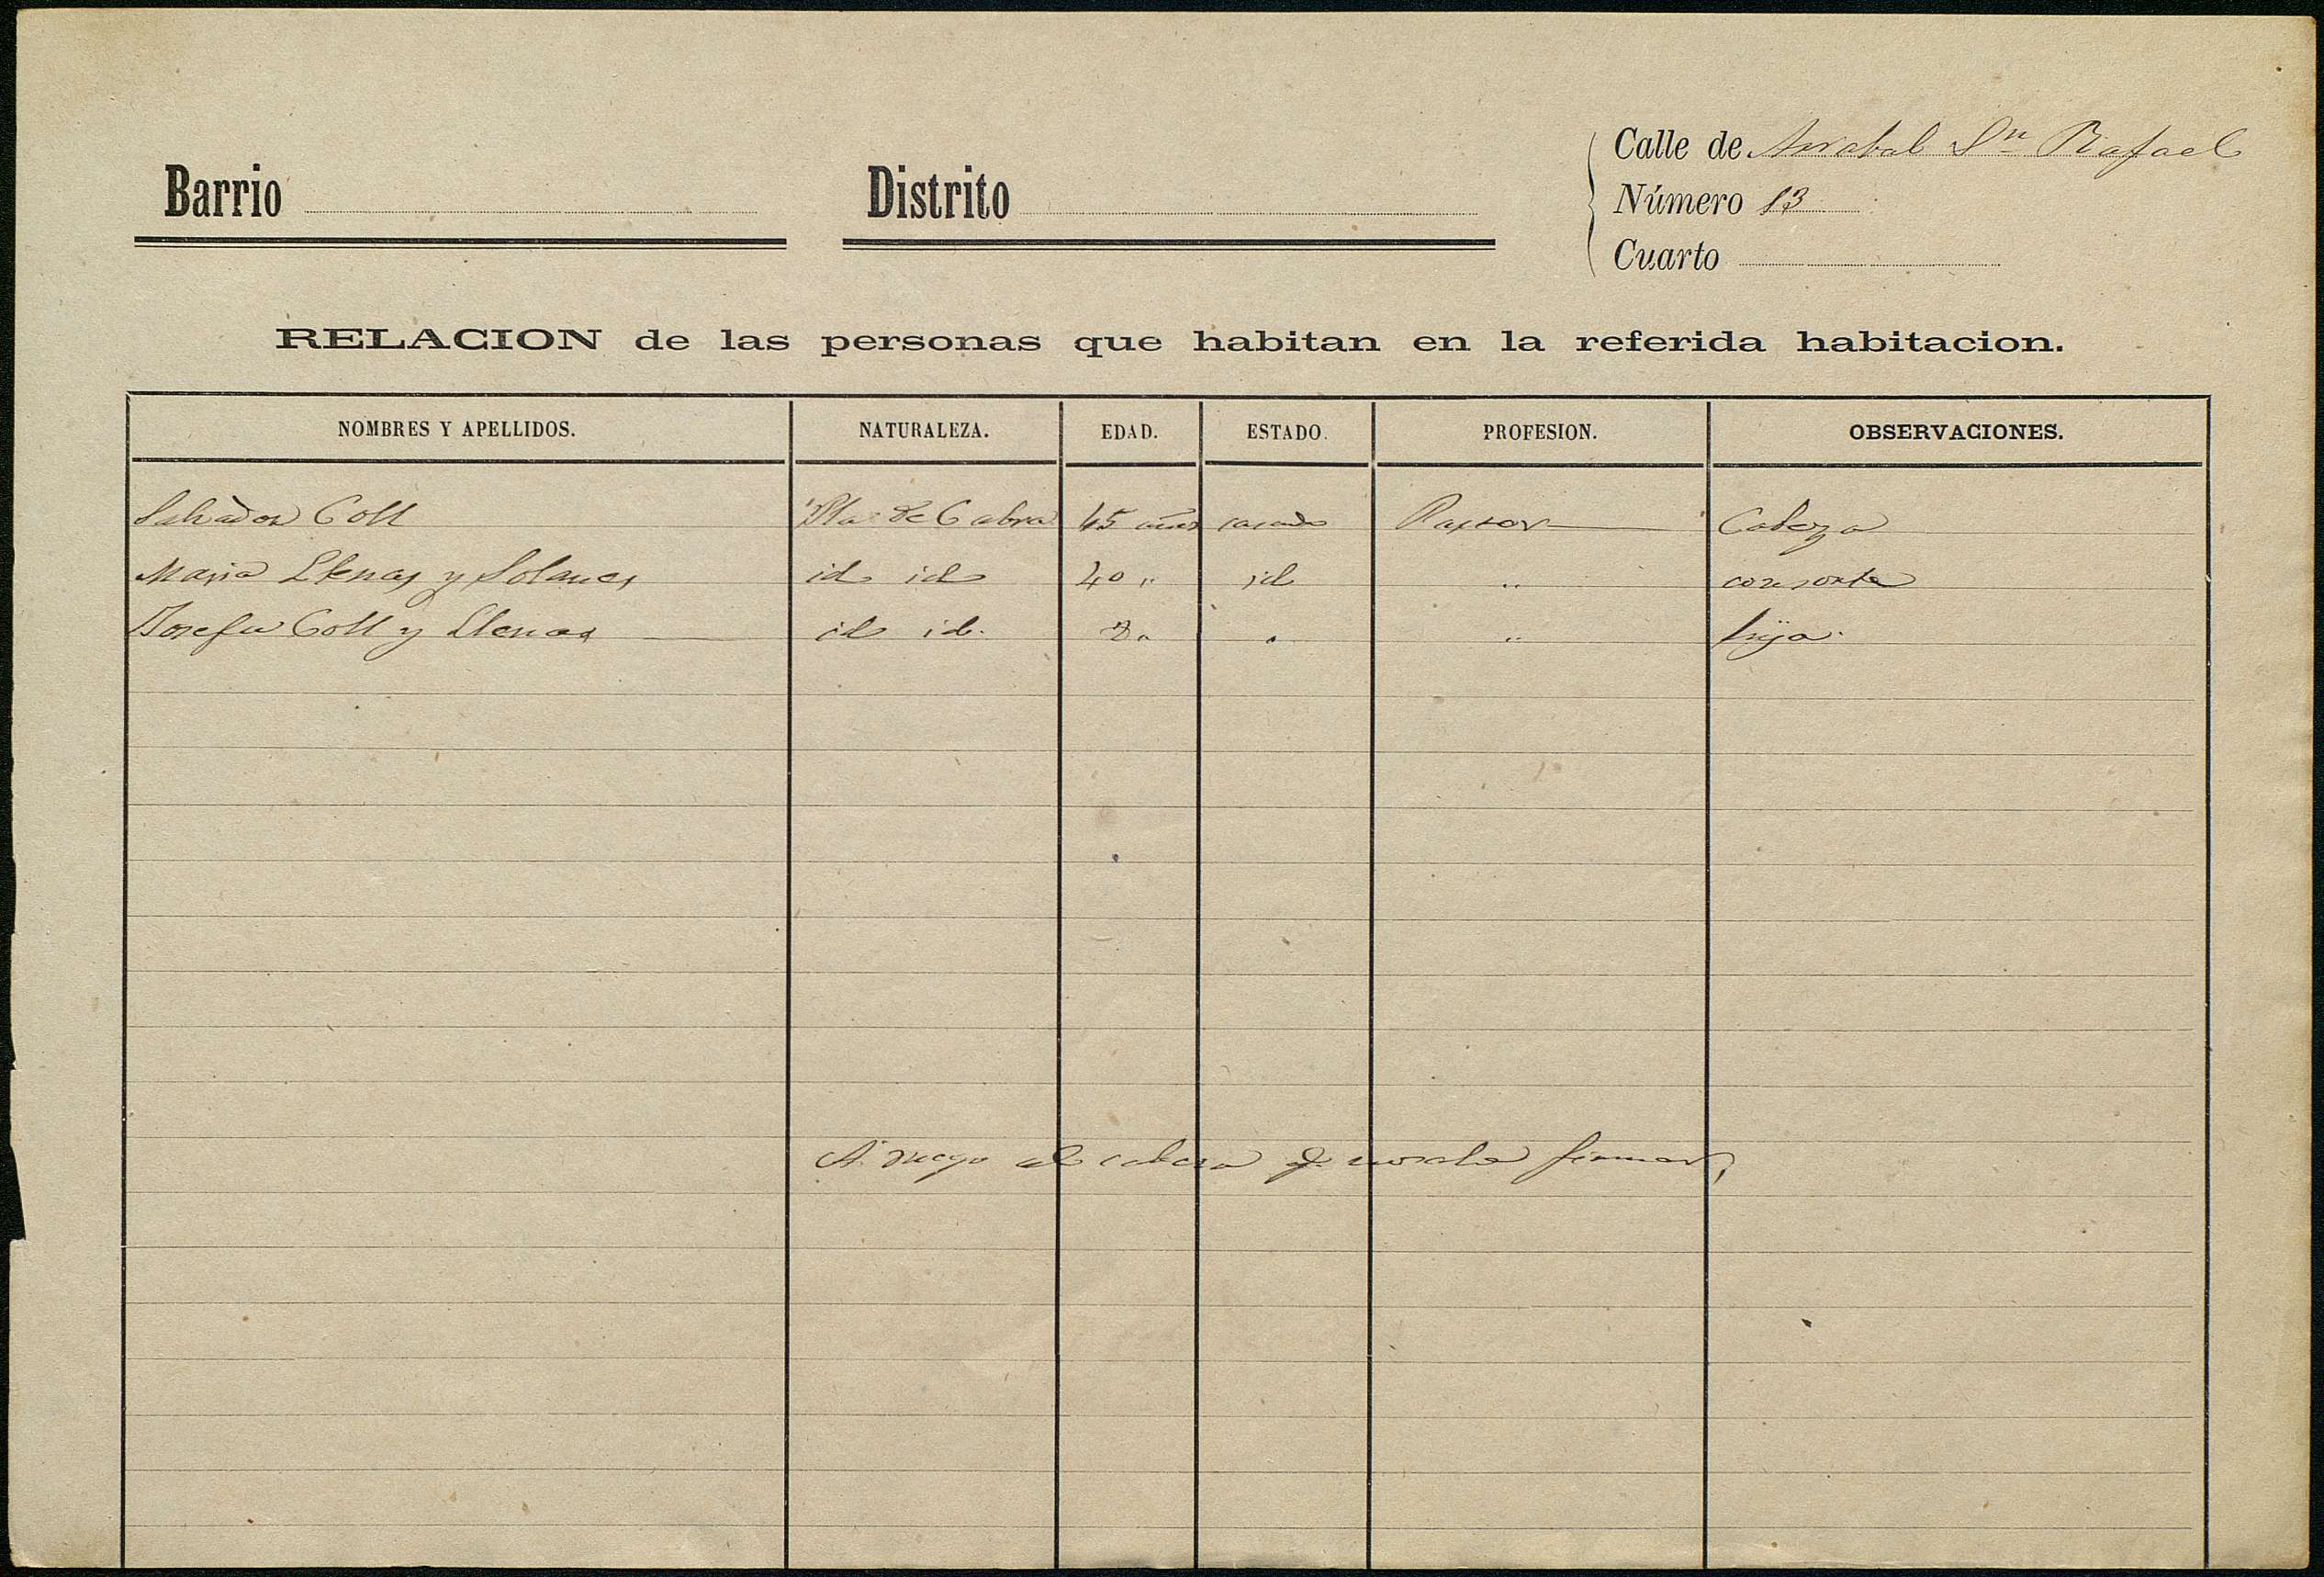 Barrio
Distrito
Calle de Arrabal Sn Rafael
Número 13
Cuarto
RELACION de las personas que habitan en la referida habitacion.
NOMBRES Y APELLIDOS. NATURALEZA. EDAD. ESTADO. PROFESION. OBSERVACIONES.
Salvador Coll Pla de Cabra 45 años casado Pastor Cabeza
Maria Llenas y Solanes id id 40 " id " consorte
Josefa Coll y Llenas id id. " " hija.
A ruego del cabeza q. no sabe firmar,